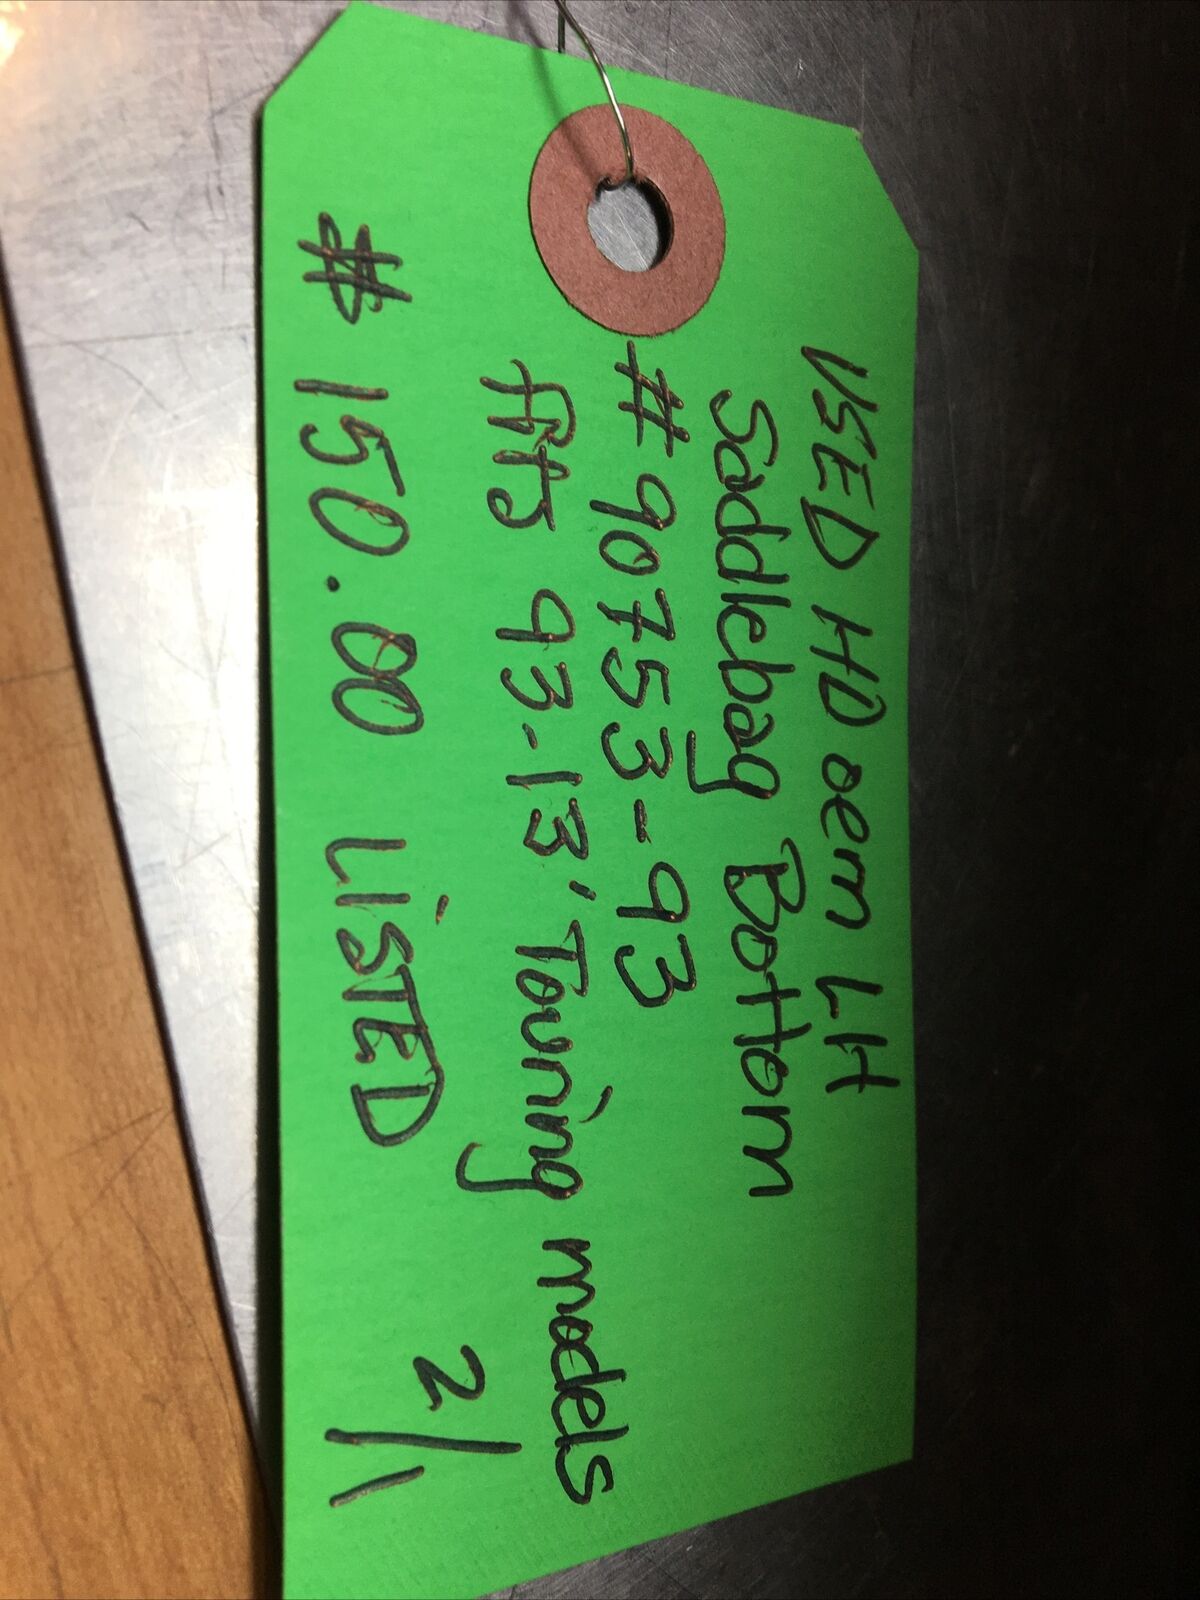 USED HD oem LH
Saddlebag Bottom
#90753-93
fits 93-13' Touring models
$150.00 LISTED 2/1